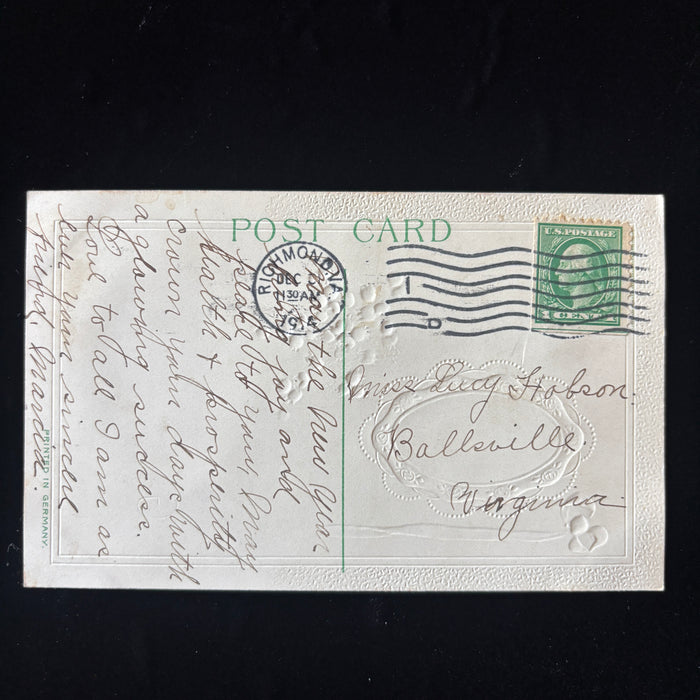 POST CARD
U.S. POSTAGE
RICHMOND, VA.
DEC
130A
1
D
CENT
Miss Lucy Hobson.
Ballsville
Virginia
the New Year
joy and
to you. May
Health & prosperity
crown your days with
a glowing success.
Love to all I am as
ever your sincere
friend,
PRINTED IN GERMANY.